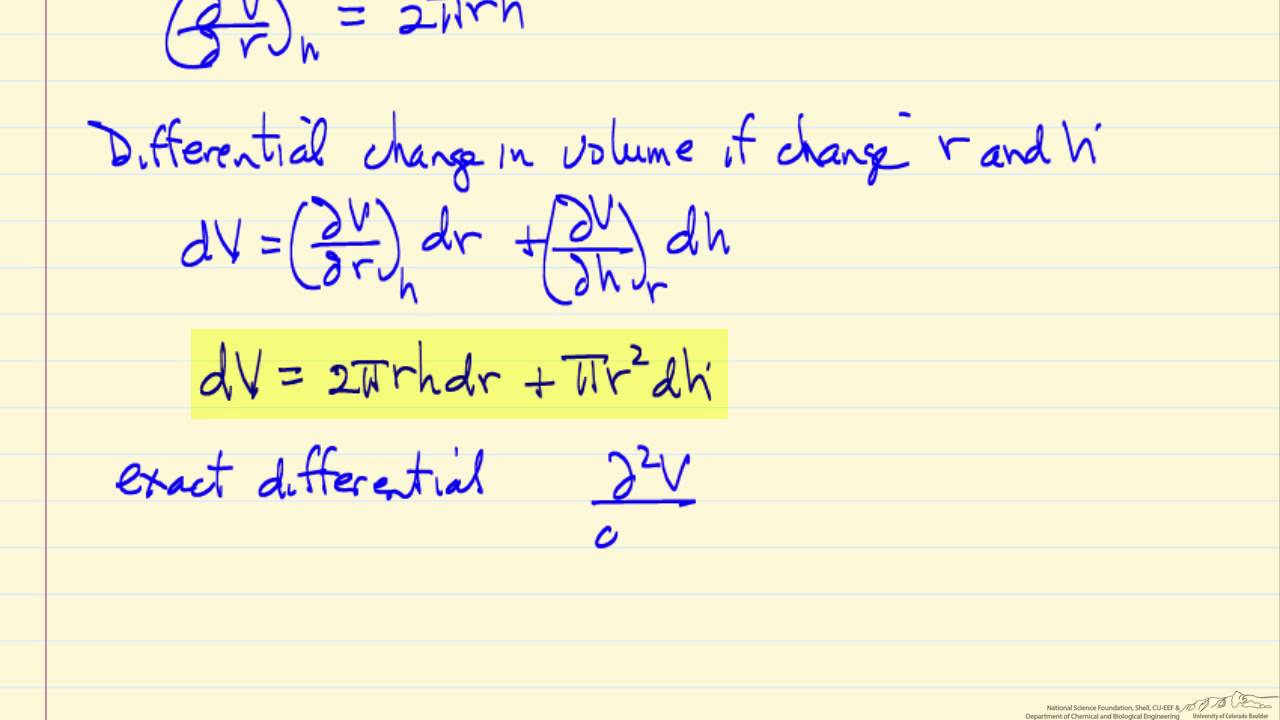 (∂V/∂r)_h = 2πrh
Differential change in volume if change r and h
dV = (∂V/∂r)_h dr + (∂V/∂h)_r dh
dV = 2πrh dr + πr² dh
exact differential ∂²V/∂
National Science Foundation, Shell, CU-EEF &
Department of Chemical and Biological Engineering
University of Colorado Boulder